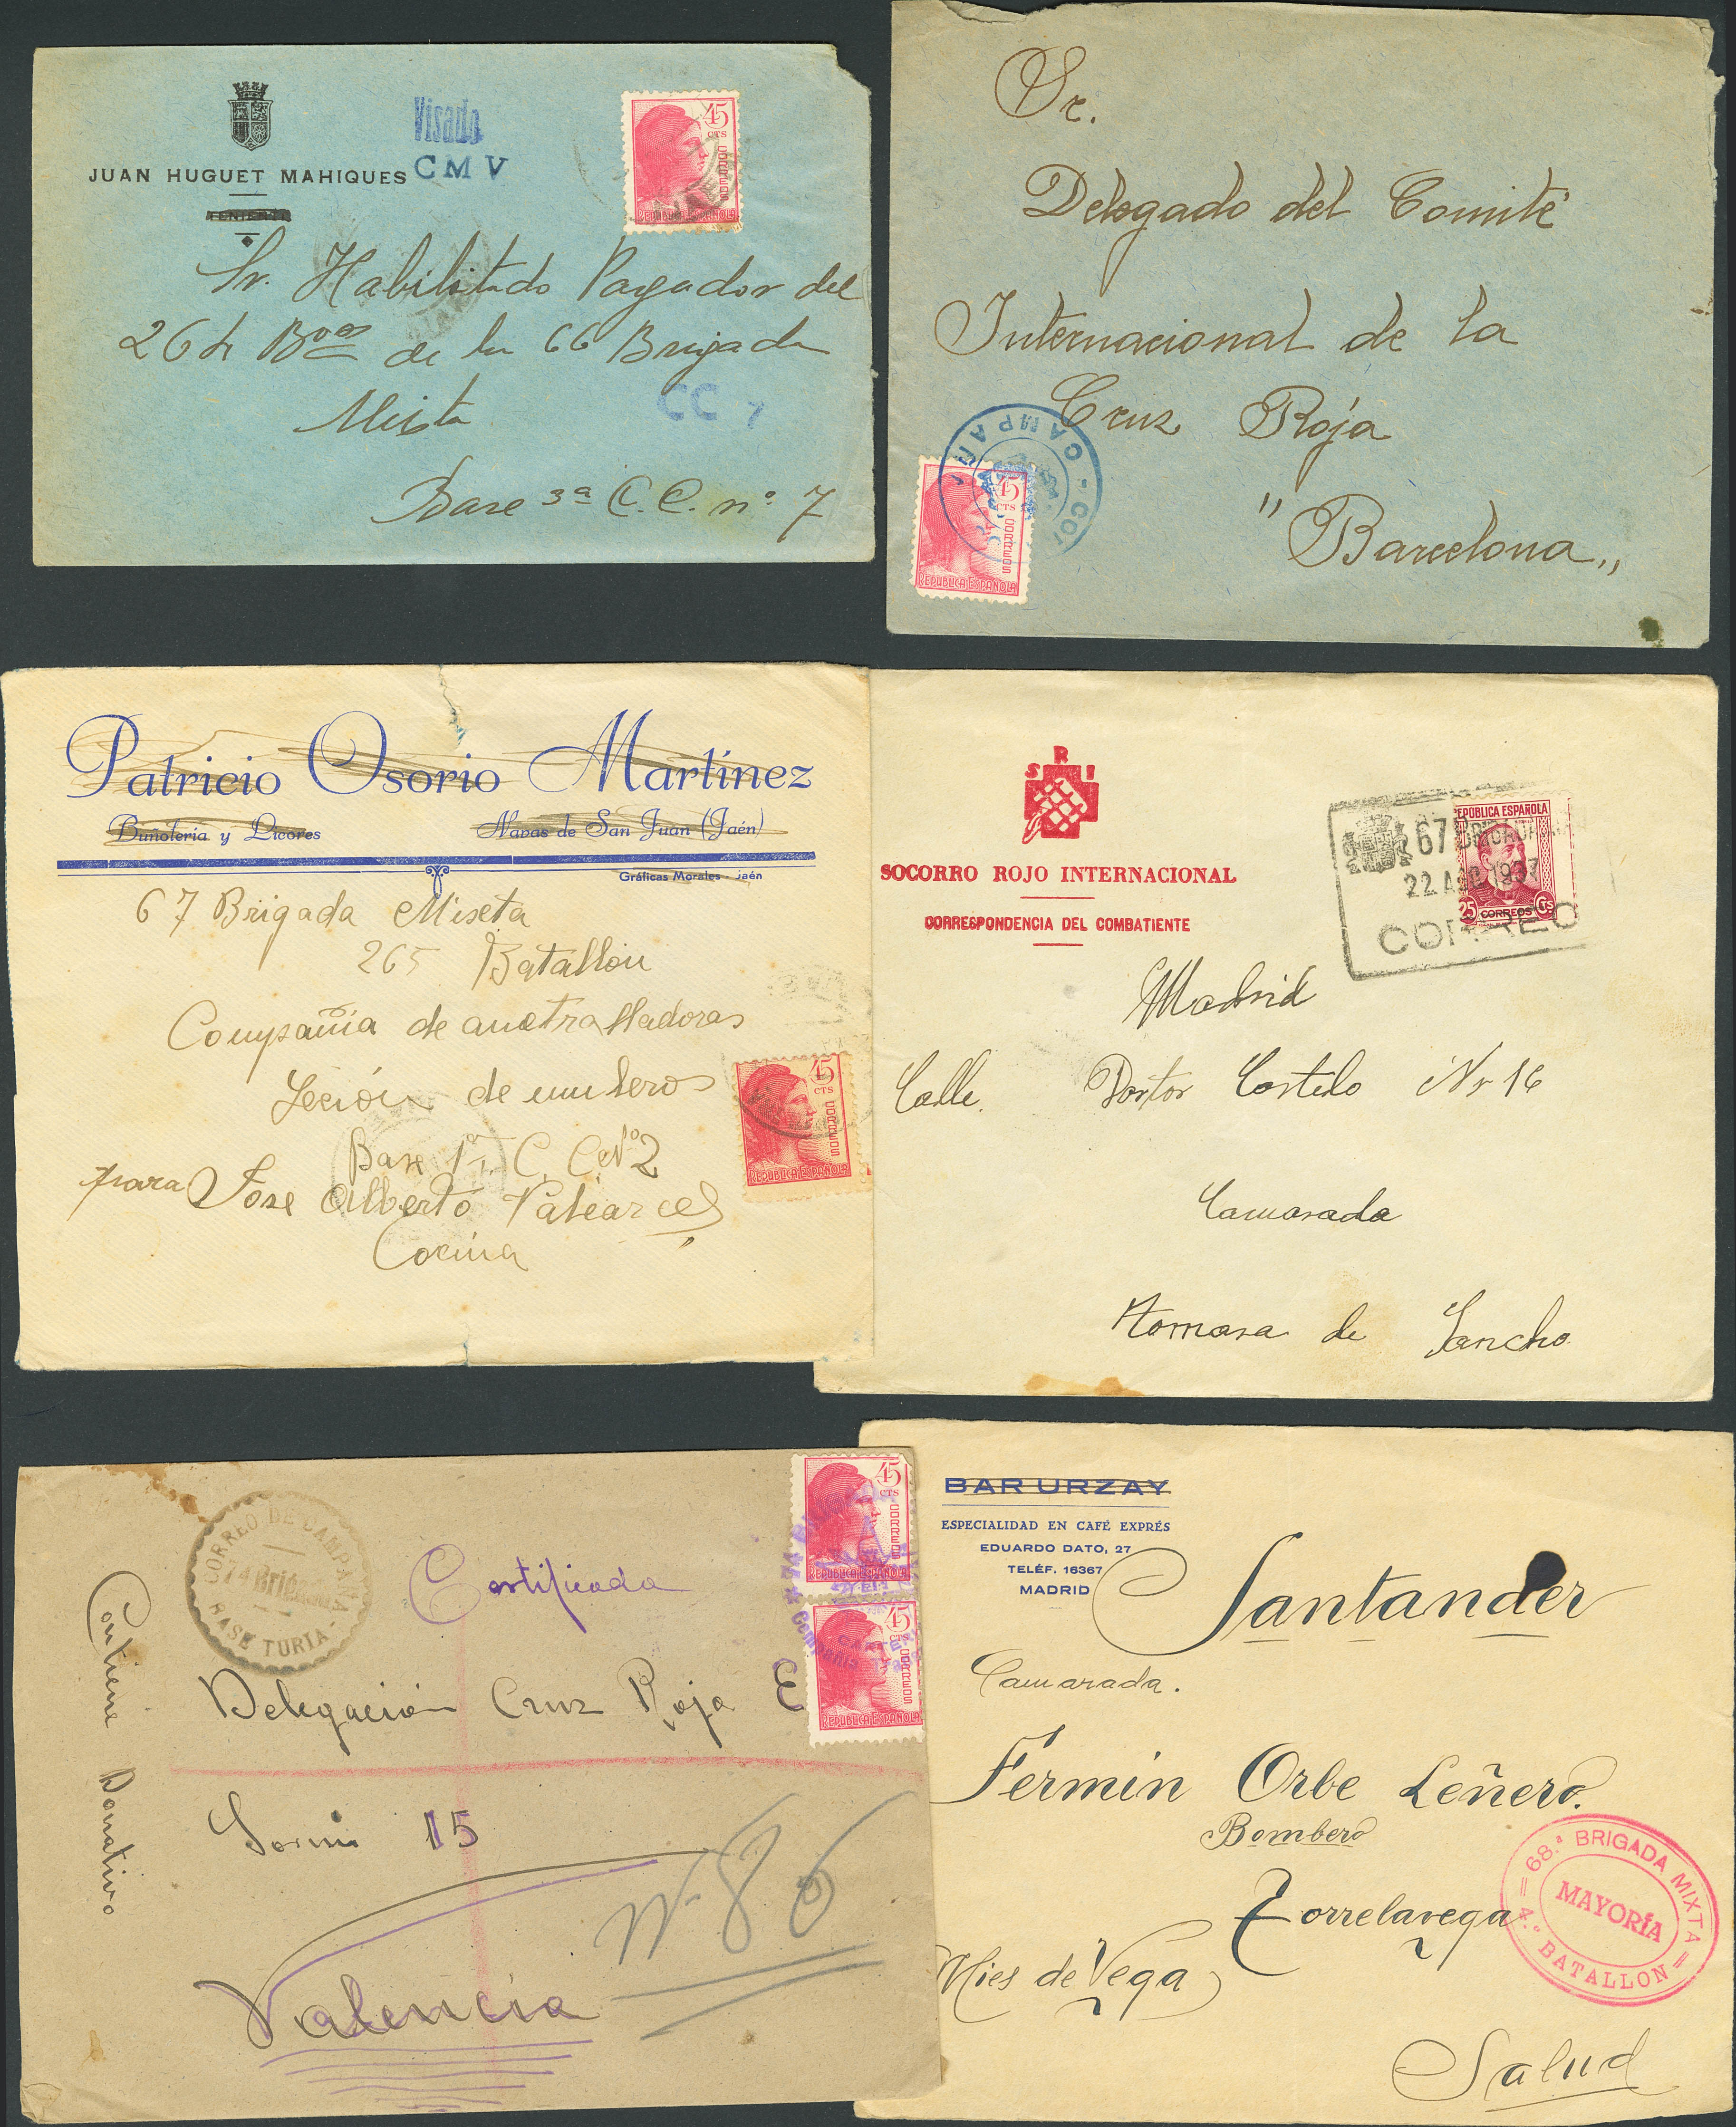 JUAN HUGUET MAHIQUES
TENIENTE
Visado
CMV
45
CTS
CORREOS
REPUBLICA ESPAÑOLA
Sr. Habilitado Pagador del
264 Bon de la 66 Brigada
Mixta
CC 7
Base 3ª C.C. nº 7
Sr.
Delegado del Comité
Internacional de la
Cruz Roja
"Barcelona„
CAMPAÑ
45
CTS
CORREOS
REPUBLICA ESPAÑOLA
Patricio Osorio Martínez
Buñolería y Licores Navas de San Juan (Jaén)
Gráficas Morales - Jaén
67 Brigada Miseta
265 Batallon
Compañia de ametralladoras
de muleros
Base 1ª C. C. Nº 2
para Jose Alberto
Cocina
45
CTS
CORREOS
REPUBLICA ESPAÑOLA
S R I
SOCORRO ROJO INTERNACIONAL
CORRESPONDENCIA DEL COMBATIENTE
REPÚBLICA ESPAÑOLA
25 CORREOS Cts
67 BRIGADA
22 AGO. 1937
CORREO
Madrid
Calle Dortor Costelo Nr 16
Camarada
de Sancho
CORREO DE CAMPAÑA
74 Brigada
BASE TURIA
Certificada
Contiene Donativo
45
CTS
CORREOS
REPUBLICA ESPAÑOLA
45
CTS
CORREOS
REPUBLICA ESPAÑOLA
Delegación Cruz Roja E
15
Nº 86
Valencia
BAR URZAY
ESPECIALIDAD EN CAFÉ EXPRÉS
EDUARDO DATO, 27
TELÉF. 16367
MADRID
Santander
Camarada.
Fermin Orbe Leñero.
Bombero
Torrelavega
Mies de Vega
Salud
68.ª BRIGADA MIXTA
MAYORÍA
4.º BATALLON